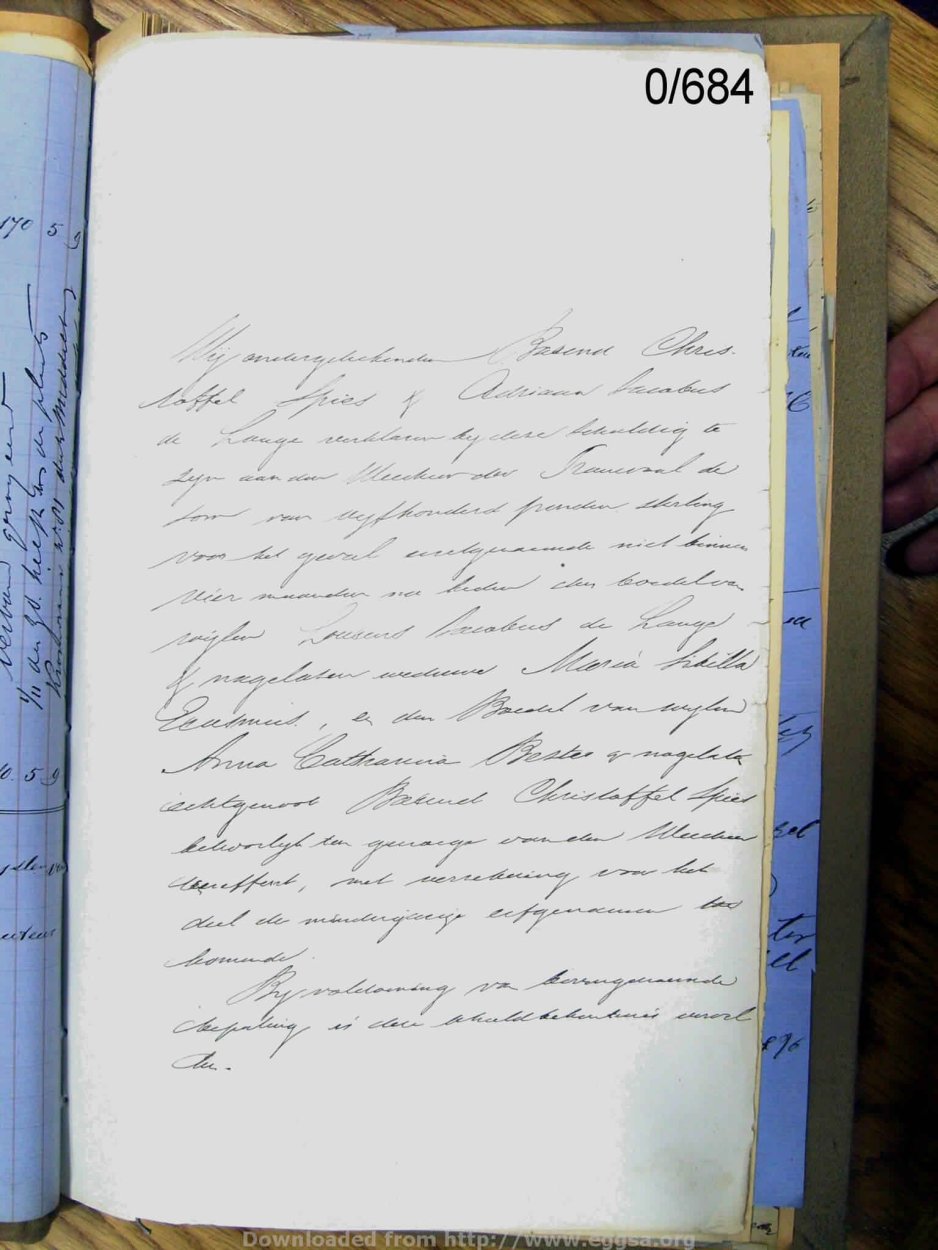 0/684
Wij ondergeteekenden Barend Chris-
toffel Spies & Adriaan Jacobus
de Lange verklaren by deze schuldig te
zyn aan den Weesheer der Transvaal de
som van vyfhonderd ponden sterling
voor het geval eerstgenoemde niet binnen
vier maanden na heden den boedel van
wylen Lourens Jacobus de Lange
& nagelaten weduwe Maria Sibilla
Erasmus, en den Boedel van wylen
Anna Catharina Bester & nagelaten
echtgenoot Barend Christoffel Spies
behoorlyk ten genoege van den Weesheer
vereffent, met verzekering van het
deel de minderjarige erfgenamen toe
komende.
By voldoening van bovengenoemde
bepaling is deze schuldbekentenis verval
len.
170 5 9
verband
1/11
0. 5 9
Downloaded from http://www.eggsa.org